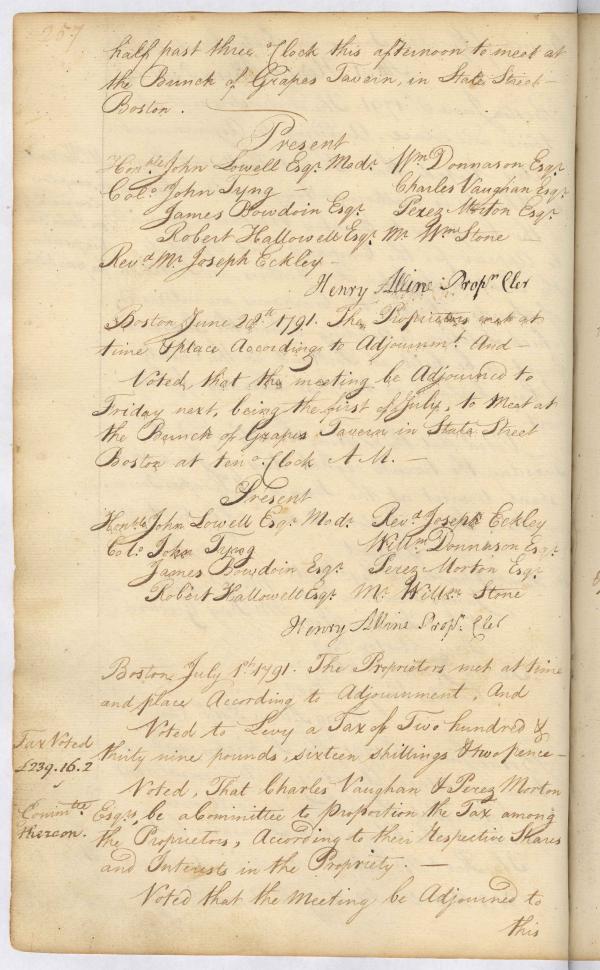 257
half past three oClock this afternoon to meet at
the Bunch of Grapes Tavern, in State Street
Boston.
Present
Honble John Lowell Esqr. Modr. Wm Donnason Esqr.
Colo. John Tyng — Charles Vaughan Esqr.
James Bowdoin Esqr. Perez Morton Esqr.
Robert Hallowell Esqr. Mr. Wm Stone
Revd. Mr. Joseph Eckley —
Henry Alline Propn. Cler
Boston June 28th 1791. The Proprietors met at
time & place According to Adjournmt. And —
Voted, that the meeting be Adjourned to
Friday next, being the first of July, to Meet at
the Bunch of Grapes Tavern in State Street
Boston at ten oClock A M. —
Present
Honble John Lowell Esqr. Modr. Revd. Joseph Eckley
Colo. John Tyng Willm Donnason Esqr.
James Bowdoin Esqr. Perez Morton Esqr.
Robert Hallowell Esqr. Mr. Willm Stone
Henry Alline Propn. Cler
Boston July 1st. 1791. The Proprietors met at time
and place According to Adjournment, And
Voted to Levy a Tax of Two hundred &
thirty nine pounds, sixteen shillings & two pence —
Tax Voted
£239.16.2
Voted, That Charles Vaughan & Perez Morton
Esqrs. be a Committee to proportion the Tax among
the Proprietors, According to their respective Shares
and Interests in the Propriety. —
Committee
thereon.
Voted that the Meeting be Adjourned to
this